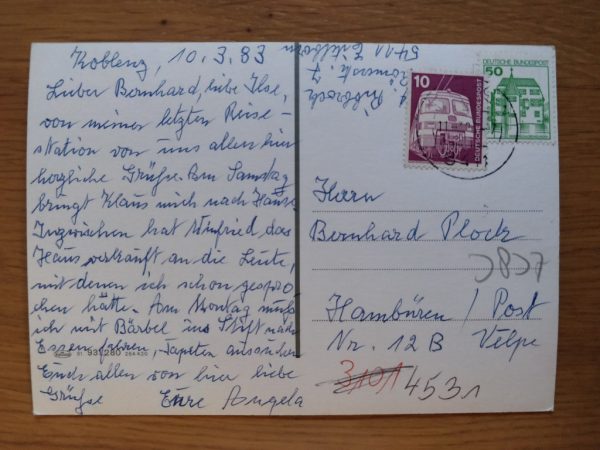 Koblenz, 10.3.83
Lieber Bernhard, liebe Ilse,
von meiner letzten Reise-
station von uns allen hier
herzliche Grüße. Am Samstag
bringt Klaus mich nach Hause.
Inzwischen hat Winfried das
Haus verkauft an die Leute,
mit denen ich schon gespro
chen hatte. Am Montag muß
ich mit Bärbel ins Stift nach
Essen fahren, Tapeten aussuchen
Euch allen von hier liebe
Grüße Eure Angela
93 280
10
DEUTSCHE BUNDESPOST
50
DEUTSCHE BUNDESPOST
Herrn
Bernhard Plöck
Hambüren / Post
Nr. 12 B Velpe
4531